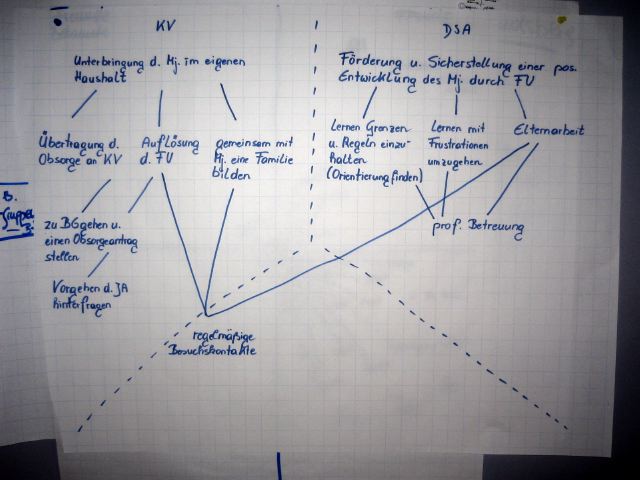 KV
DSA
Unterbringung d. Mj. im eigenen
Haushalt
Förderung u. Sicherstellung einer pos.
Entwicklung des Mj. durch FU
Übertragung d.
Obsorge an KV
Auflösung
d. FU
gemeinsam mit
Mj. eine Familie
bilden
Lernen Grenzen
u. Regeln einzu-
halten
(Orientierung finden)
Lernen mit
Frustrationen
umzugehen
Elternarbeit
zu BG gehen u.
einen Obsorgeantrag
stellen
prof. Betreuung
Vorgehen d. JA
hinterfragen
regelmäßige
Besuchskontakte
B.
Gruppe